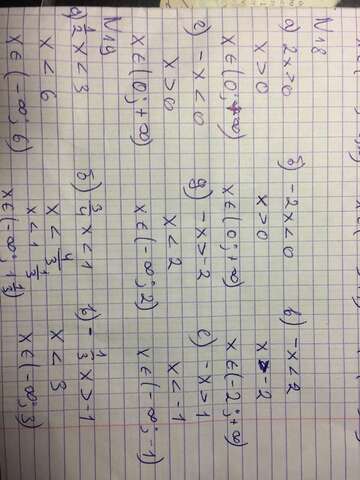 N18
а) 2x>0
x>0
x∈(0;+∞)
б) -2x<0
x>0
x∈(0;+∞)
в) -x<2
x -2
x∈(-2;+∞)
г) -x<0
x>0
x∈(0;+∞)
д) -x>-2
x<2
x∈(-∞;2)
е) -x>1
x<-1
x∈(-∞;-1)
N19
а) 1/2 x<3
x<6
x∈(-∞;6)
б) 3/4 x<1
x<4/3
x<1 1/3
x∈(-∞;1 1/3)
в) -1/3 x>-1
x<3
x∈(-∞;3)